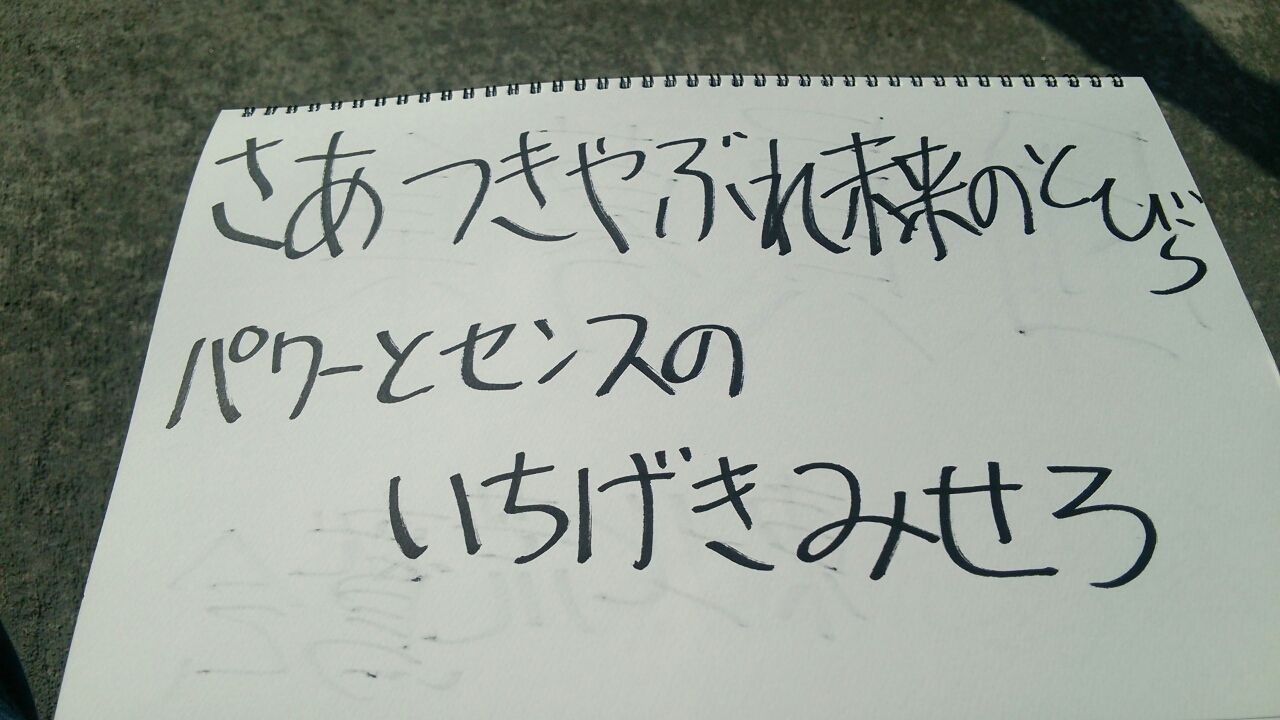 さあ つきやぶれ未来のとびら
パワーとセンスの
いちげきみせろ